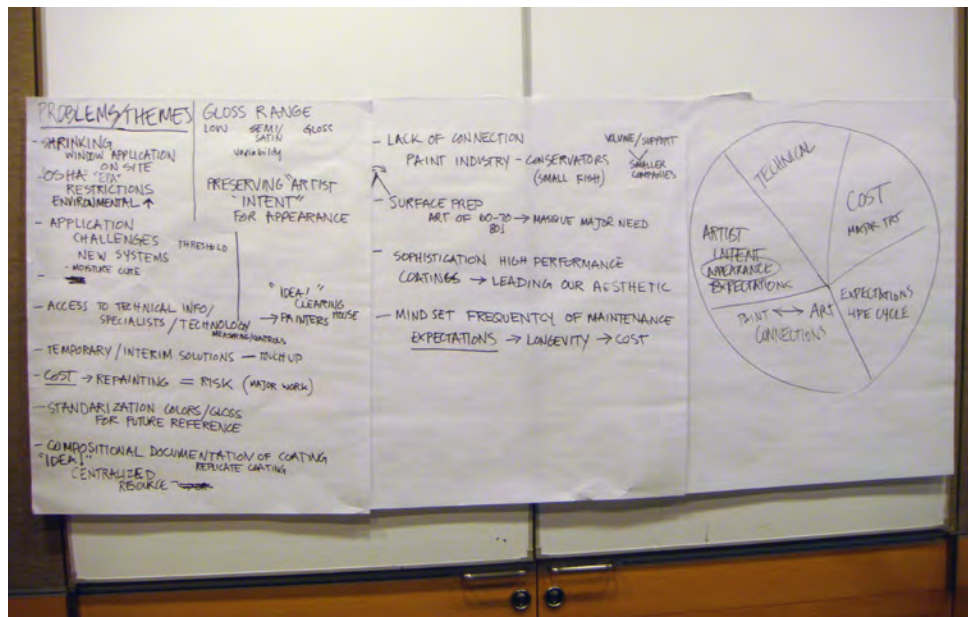 PROBLEMS/THEMES
- SHRINKING
WINDOW APPLICATION
ON SITE
- OSHA "EPA"
RESTRICTIONS
ENVIRONMENTAL ↑
- APPLICATION
CHALLENGES
NEW SYSTEMS
- MOISTURE CURE
- ACCESS TO TECHNICAL INFO/
SPECIALISTS/TECHNOLOGY
MEASURING/CONTROLS
- TEMPORARY/INTERIM SOLUTIONS - TOUCH UP
- COST → REPAINTING = RISK (MAJOR WORK)
- STANDARIZATION COLORS/GLOSS
FOR FUTURE REFERENCE
- COMPOSITIONAL DOCUMENTATION OF COATING
"IDEA!" REPLICATE COATING
CENTRALIZED
RESOURCE
GLOSS RANGE
LOW SEMI/ GLOSS
SATIN
variability
PRESERVING "ARTIST
"INTENT"
FOR APPEARANCE
THRESHOLD
"IDEA!"
CLEARING
HOUSE
→ PAINTERS
- LACK OF CONNECTION
PAINT INDUSTRY - CONSERVATORS
(SMALL FISH)
VOLUME/SUPPORT
SMALLER
COMPANIES
- SURFACE PREP
ART OF 60-70 → MASSIVE MAJOR NEED
80S
- SOPHISTICATION HIGH PERFORMANCE
COATINGS → LEADING OUR AESTHETIC
- MIND SET FREQUENTCY OF MAINTENANCE
EXPECTATIONS → LONGEVITY → COST
TECHNICAL
COST
MAJOR TRT
ARTIST
INTENT
APPEARANCE
EXPECTATIONS
EXPECTATIONS
LIFE CYCLE
PAINT ↔ ART
CONNECTIONS